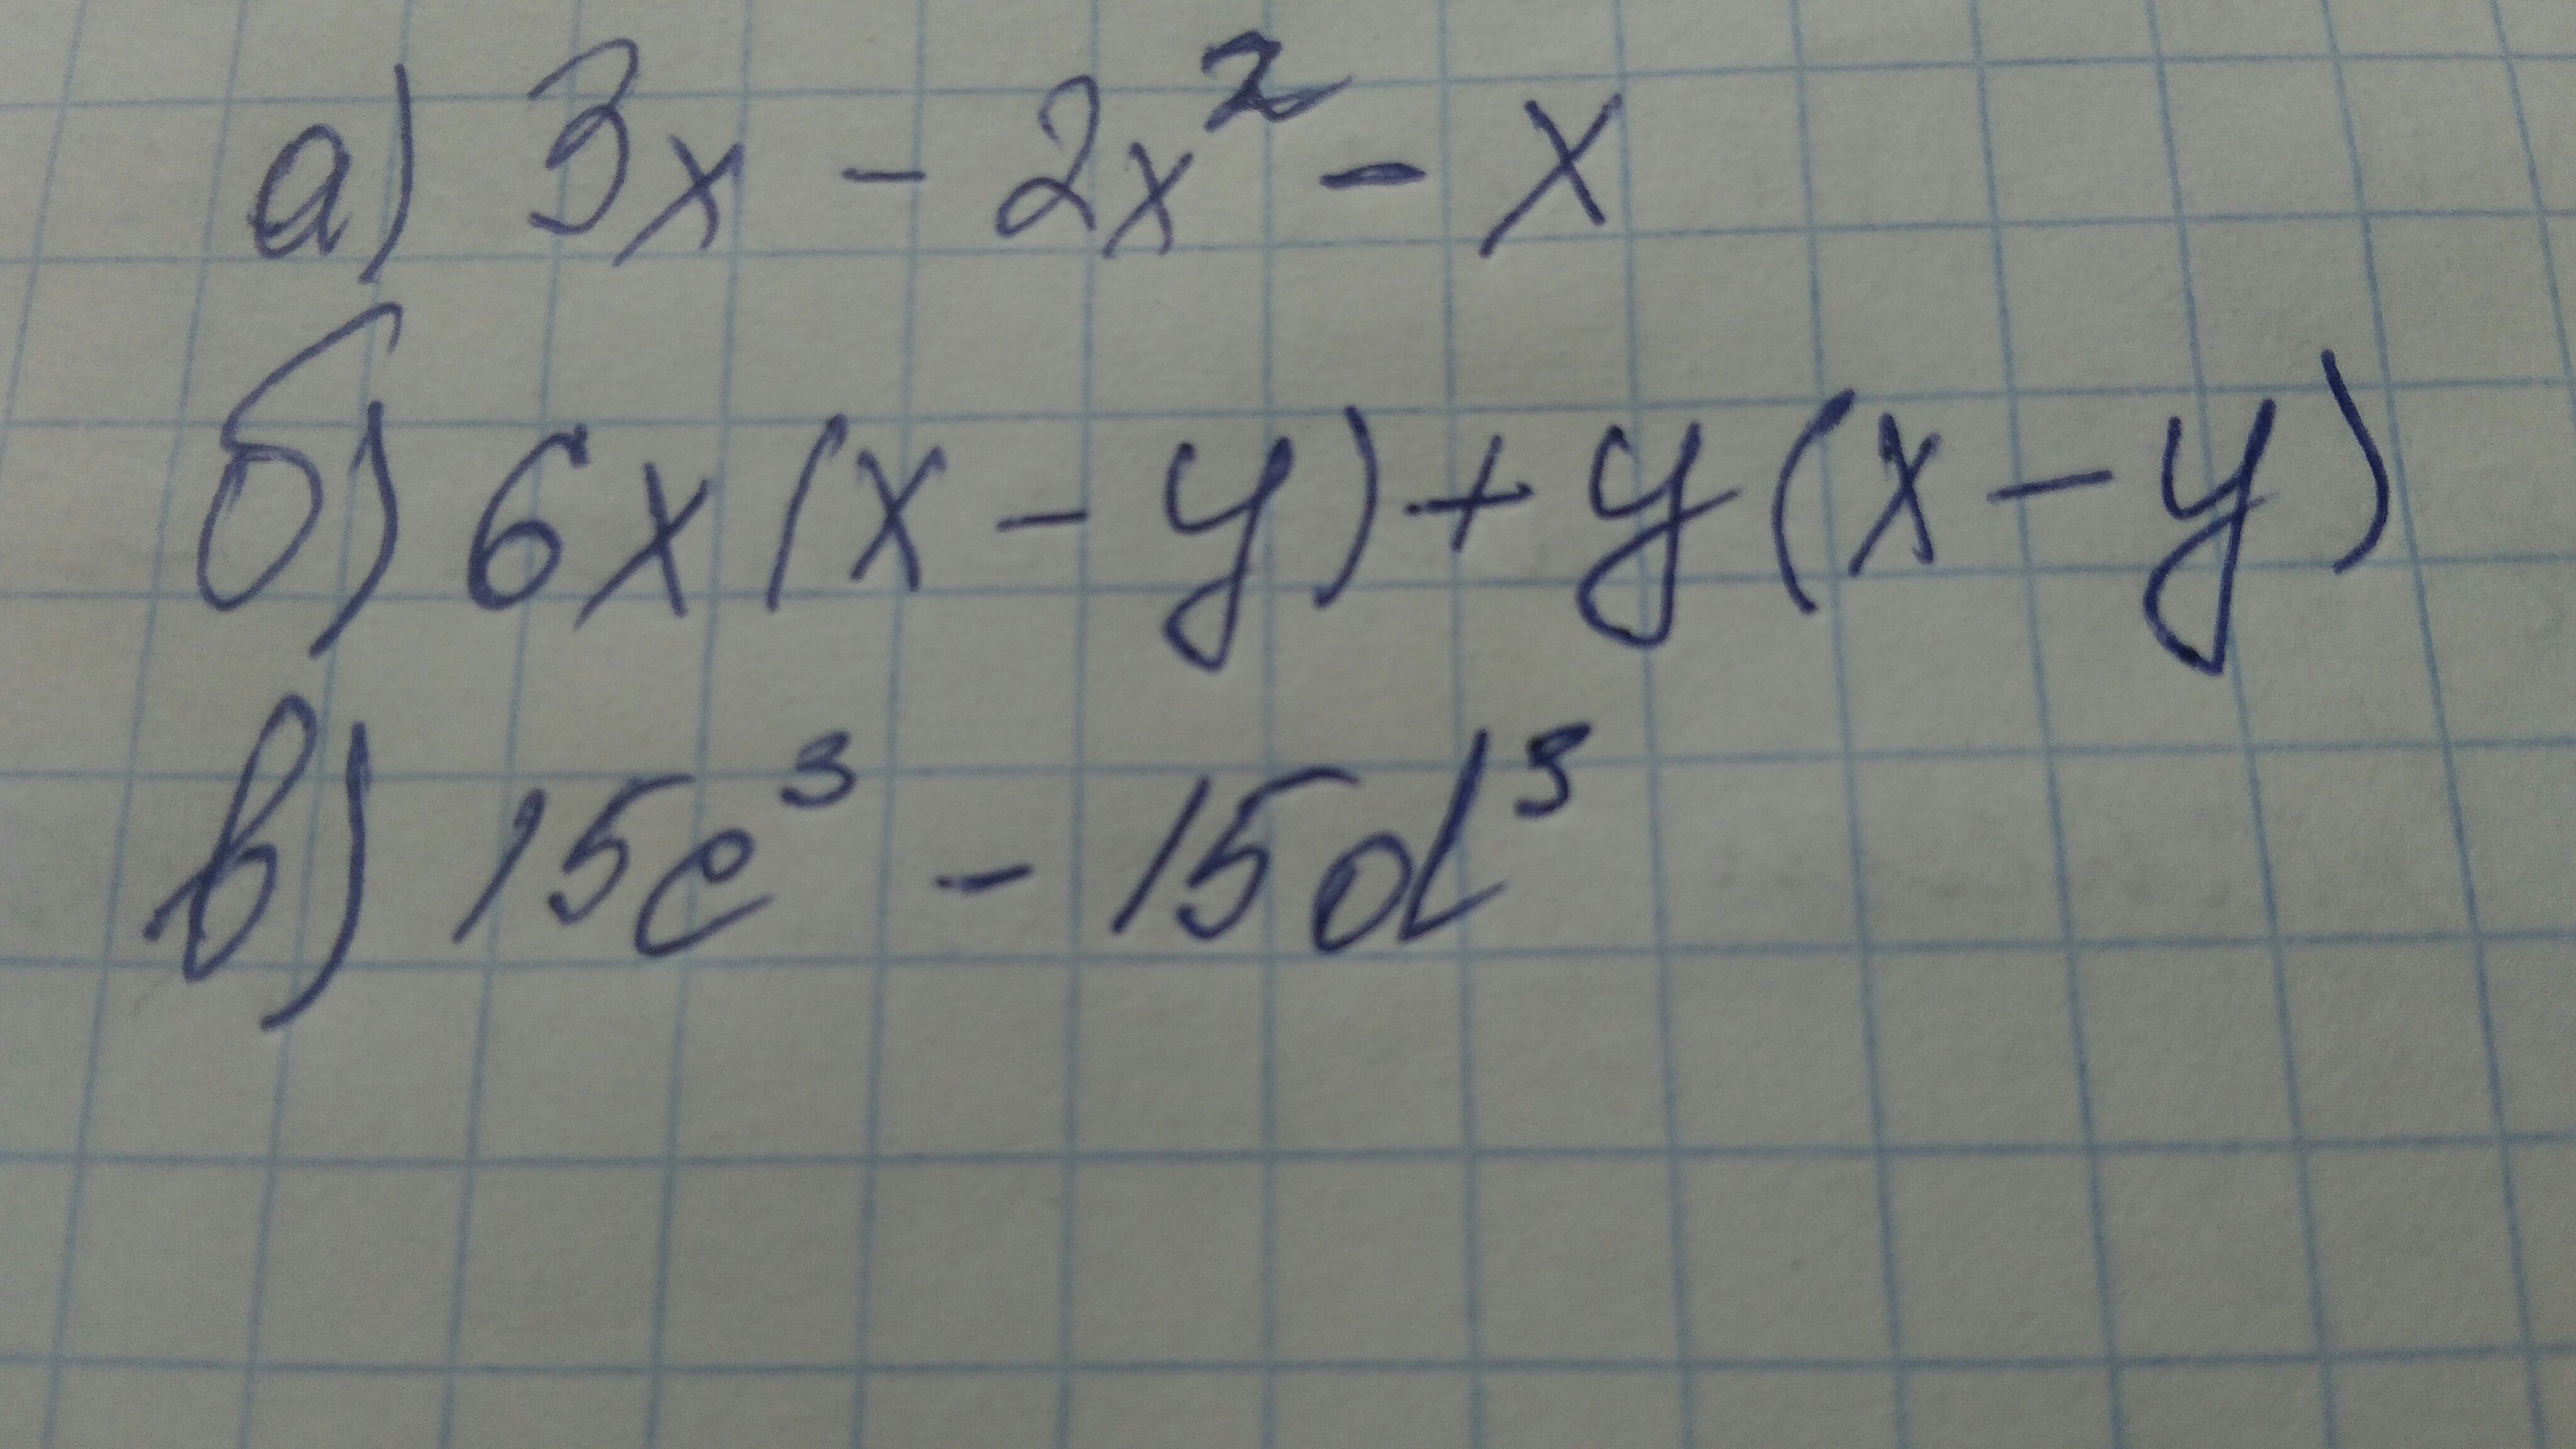 а) 3x - 2x² - x
б) 6x(x - y) + y(x - y)
в) 15c³ - 15d³